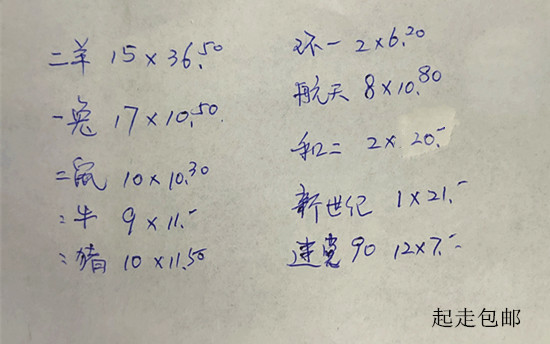 二羊 15×36.50
一兔 17×10.50
二鼠 10×10.30
二牛 9×11.-
二猪 10×11.50
环一 2×6.20
航天 8×10.80
和二 2×20.-
新世纪 1×21.-
建党90 12×7.-
起走包邮